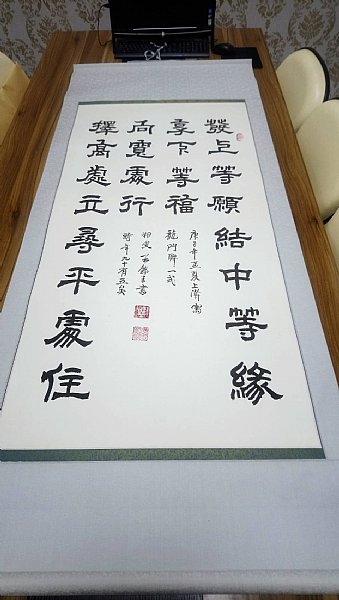 發上等願結中等緣
享下等福
庚子年孟夏上澣寫
龍門聯一式
擇高處立尋平處住
向寬處行
書
時年九十有五矣